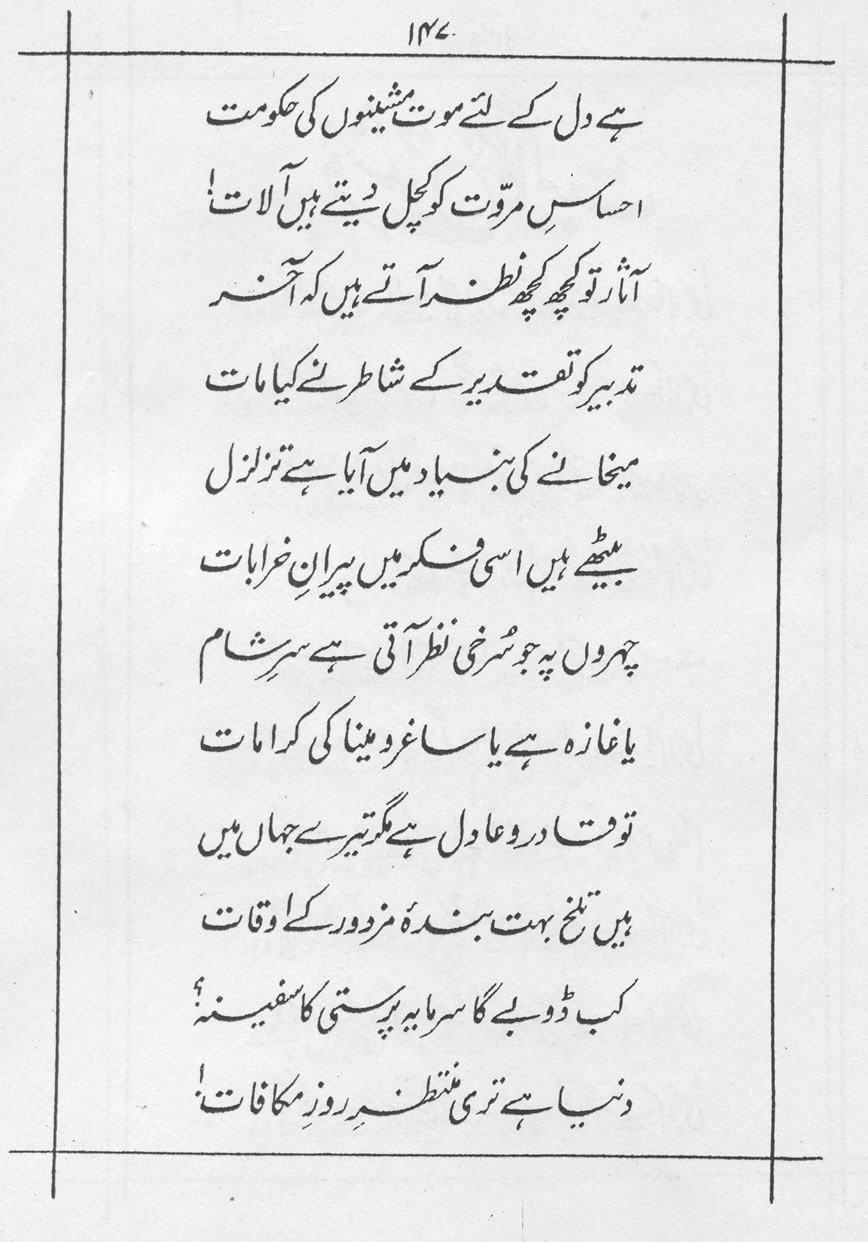 ۱۴۷
ہے دل کے لئے موت مشینوں کی حکومت
احساسِ مروّت کو کچل دیتے ہیں آلات!
آثار تو کچھ کچھ نظر آتے ہیں کہ آخر
تدبیر کو تقدیر کے شاطر نے کیا مات
میخانے کی بنیاد میں آیا ہے تزلزل
بیٹھے ہیں اسی فکر میں پیرانِ خرابات
چہروں پہ جو سُرخی نظر آتی ہے سرِ شام
یا غازہ ہے یا ساغر و مینا کی کرامات
تو قادر و عادل ہے مگر تیرے جہاں میں
ہیں تلخ بہت بندۂ مزدور کے اوقات
کب ڈوبے گا سرمایہ پرستی کا سفینہ؟
دنیا ہے تری منتظرِ روزِ مکافات!